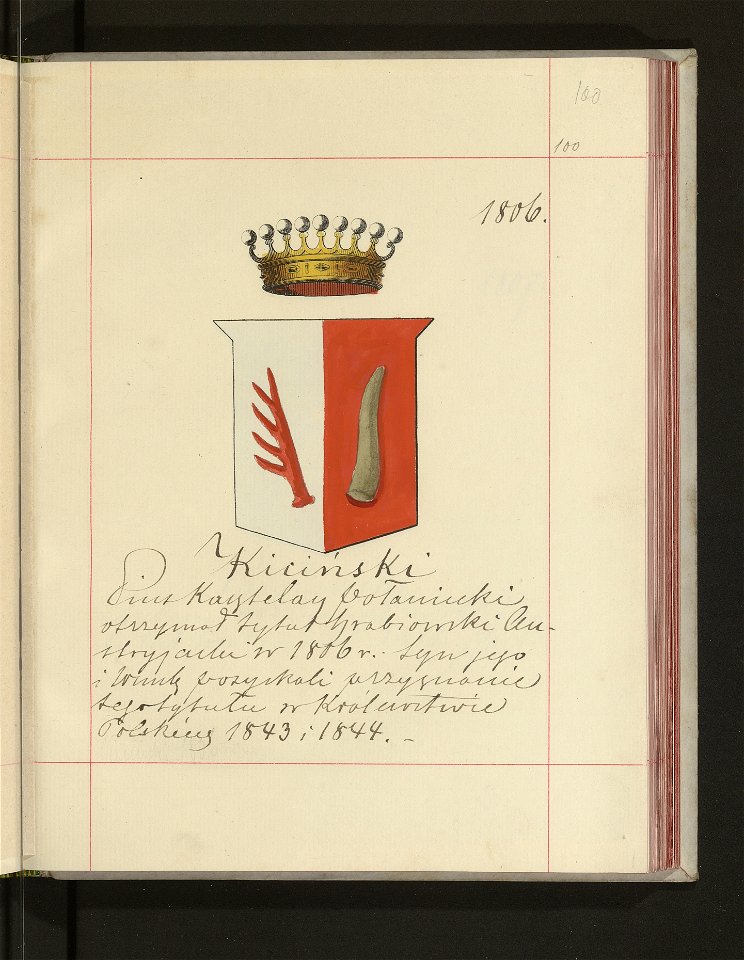 100
100
1806.
Kiciński
Pius Kasztelan Połaniecki
otrzymał tytuł hrabiowski Au-
stryjacki w 1806 r. syn jego
i wnuk pozyskali przyznanie
tego tytułu w Królewstwie
Polskiém 1843 i 1844. -